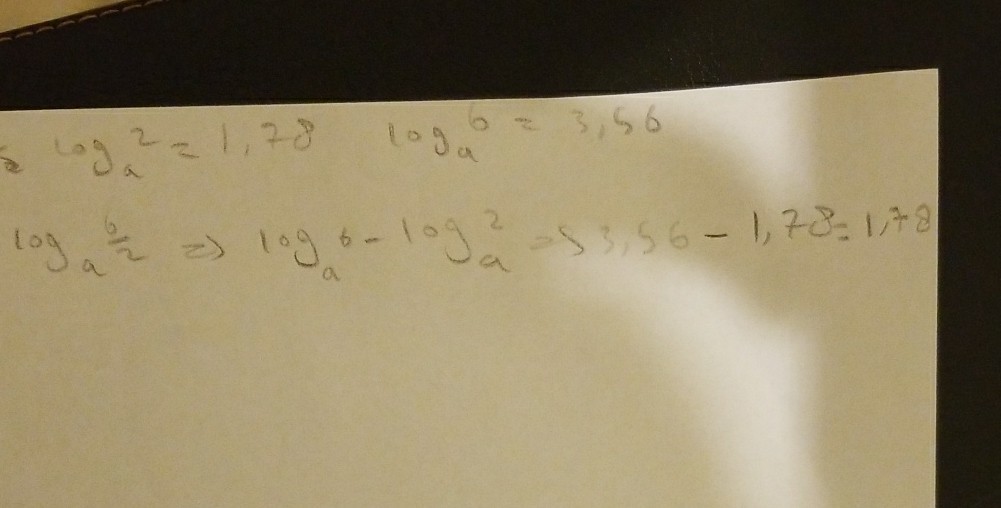 log_a 2 = 1,78 log_a 6 = 3,56
log_a 6/2 => log_a 6 - log_a 2 => 3,56 - 1,78 = 1,78